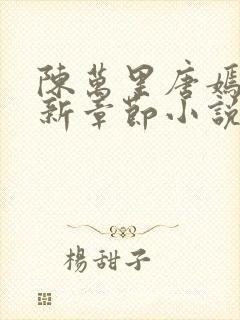 陳萬里唐嫣
新章節小說
楊甜子